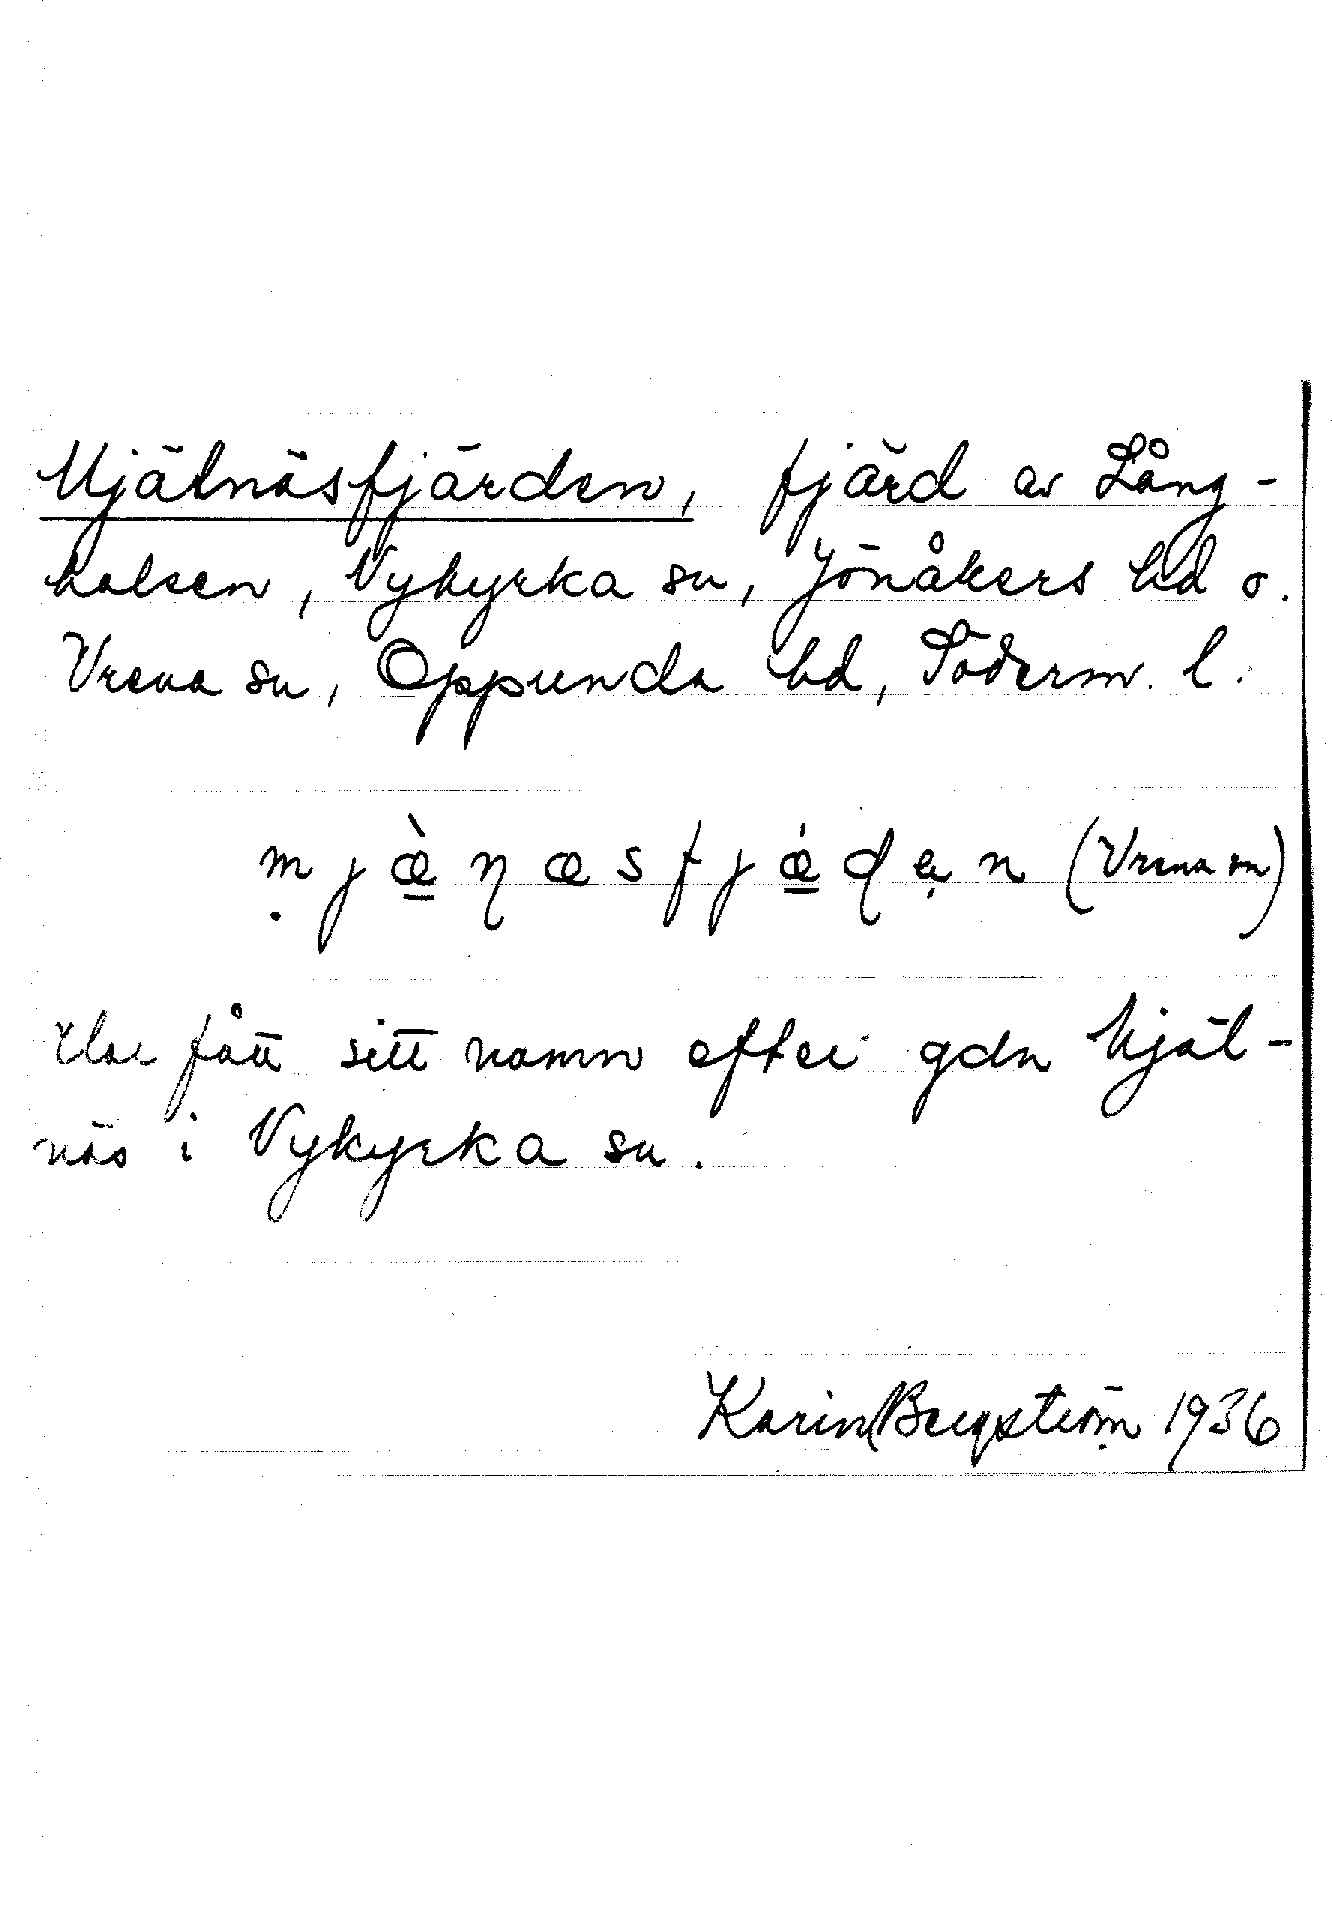 Mjälnäsfjärden, fjärd av Lång-
halsen, Vykyrka sn, Jönåkers hd o.
Vrena sn, Oppunda hd, Söderm. l.
ṃ j æ̀ ŋ æ s f j ǽ ɖ ə̣ n (Vrena sn)
Har fått sitt namn efter gdn Mjäl-
näs i Vykyrka sn.
Karin Bergström 1936